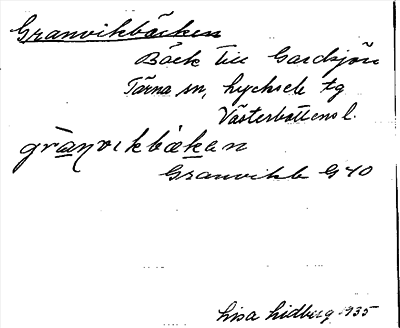 Granvikbäcken
Bäck till Gardsjön
Tärna sn, Lycksele tg
Västerbottens l.
grànvikbäkan
Granvikb G40
Lisa Lidberg 1935